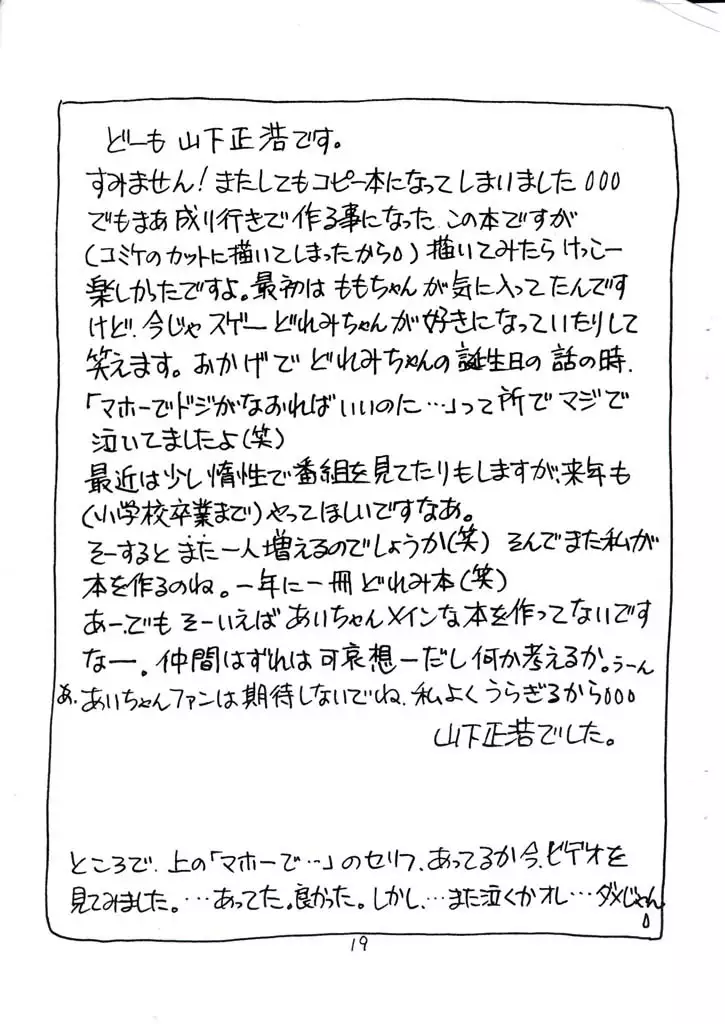 どーも 山下正浩です。
すみません! またしてもコピー本になってしまいました000
でもまあ成り行きで作る事になった この本ですが
(コミケのカットに描いてしまったから0) 描いてみたら けっこー
楽しかったですよ。最初は ももちゃんが気に入ってたんです
けど、今じゃ スゲー どれみちゃんが好きになっていたりして
笑えます。おかげで どれみちゃんの誕生日の話の時、
「マホーでドジがなおればいいのに…」って所で マジで
泣いてましたよ(笑)
最近は少し惰性で番組を見てたりもしますが、来年も
(小学校卒業まで)やってほしいですなあ。
そーすると また一人増えるのでしょうか(笑) そんでまた私が
本を作るのね。一年に一冊どれみ本(笑)
あー、でも そーいえば あいちゃんメインな本を作ってないです
なー。仲間はずれは可哀想ーだし何か考えるか。うーん
あ、あいちゃんファンは期待しないでね、私よくうらぎるから000
山下正浩でした。
ところで、上の「マホーで…」のセリフ、あってるか今、ビデオを
見てみました。…あってた。良かった。しかし、…また泣くかオレ…ダメじゃん0
19